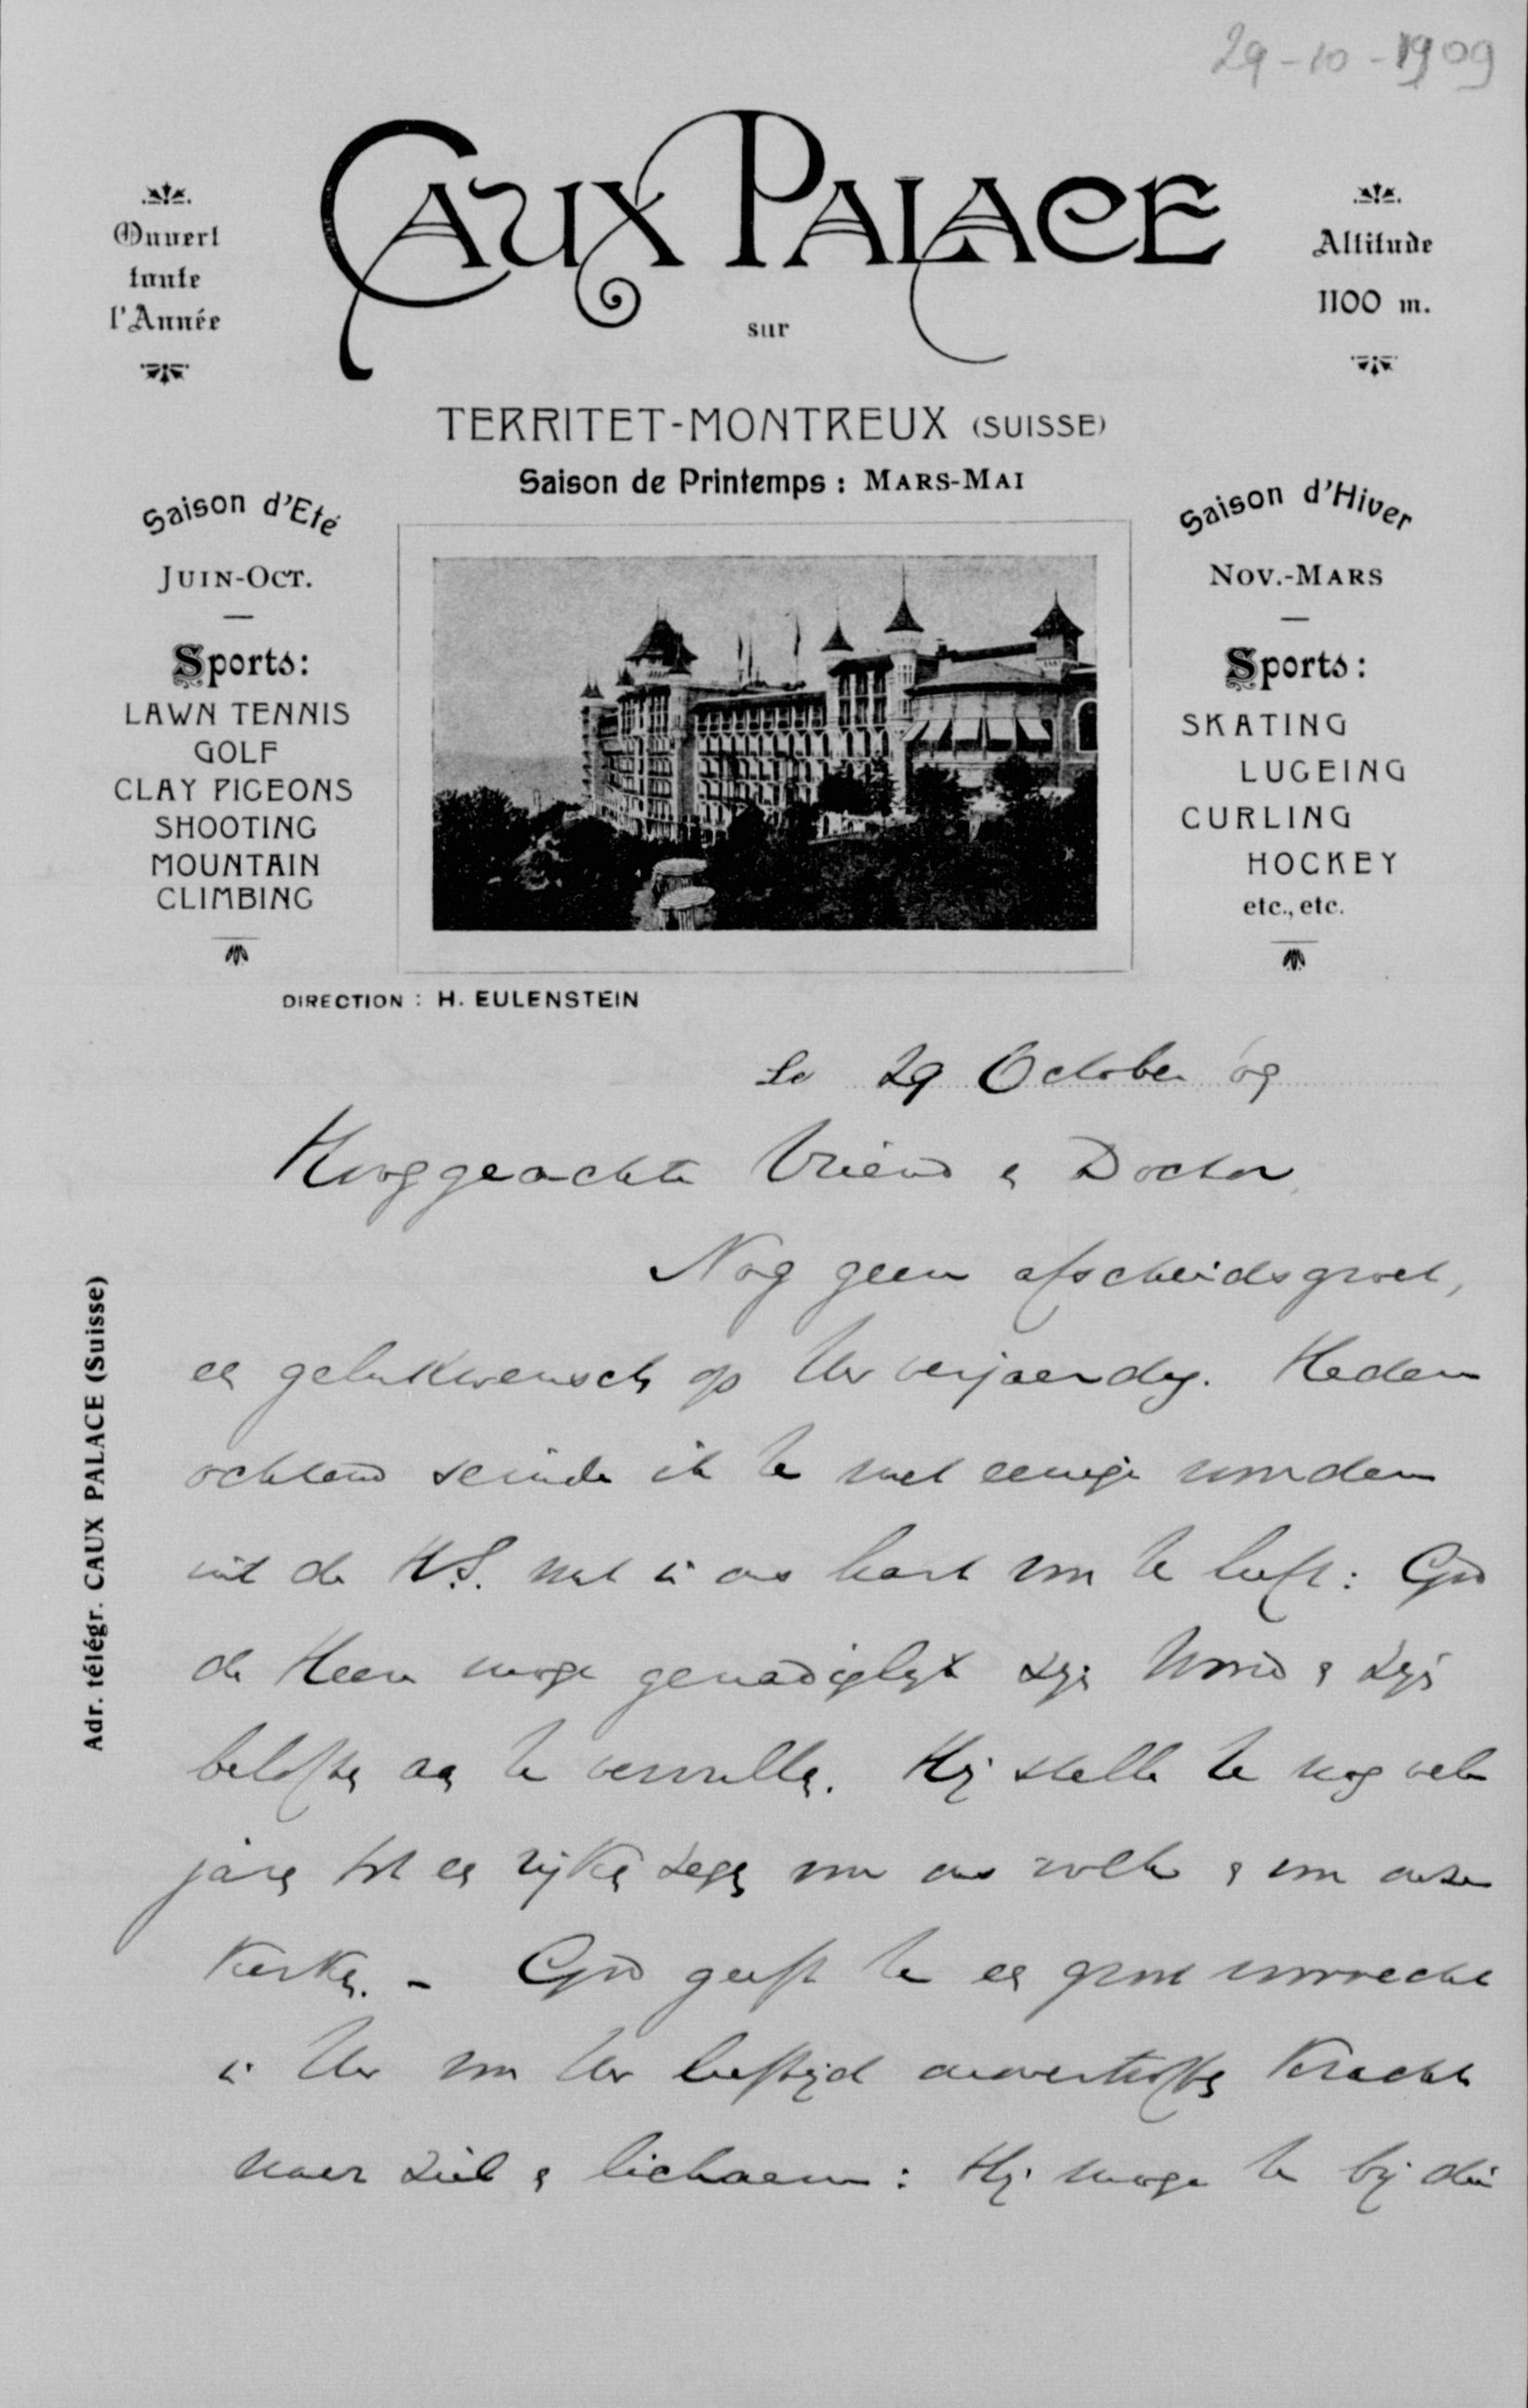 29-10-1909
Ouvert
toute
l'Année
CAUX PALACE
sur
Altitude
1100 m.
TERRITET-MONTREUX (SUISSE)
Saison de Printemps : MARS-MAI
Saison d'Eté
JUIN-OCT.
Sports:
LAWN TENNIS
GOLF
CLAY PIGEONS
SHOOTING
MOUNTAIN
CLIMBING
Saison d'Hiver
NOV.-MARS
Sports :
SKATING
LUGEING
CURLING
HOCKEY
etc., etc.
DIRECTION : H. EULENSTEIN
Adr. télégr. CAUX PALACE (Suisse)
Le 29 October 09
Hooggeachte Vriend & Doctor,
Nog geen afscheidsgroet,
en gelukwensch op Uw verjaardag. Heden
ochtend seinde ik U met eenige woorden
uit de H.S. wat in ons hart voor U leeft: God
de Heere moge genadiglijk zijn Woord & zijn
beloften aan U vervullen. Hij stelle U nog vele
jaren tot een rijken zegen voor ons volk & voor onze
Kerken. - God geeft U een groot voorrecht
in Uw voor Uw leeftijd onovertroffen Kracht
naar ziel & lichaam : Hij moge U bij die